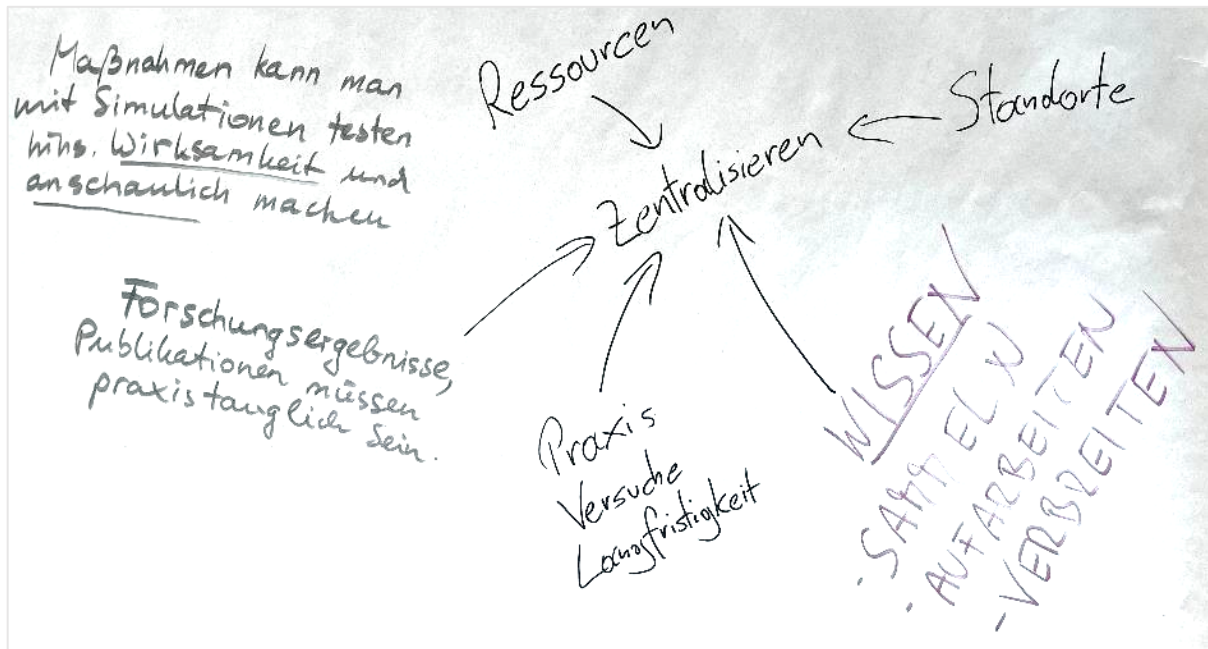 Maßnahmen kann man
mit Simulationen testen
hins. Wirksamkeit und
anschaulich machen
Ressourcen
Standorte
Zentralisieren
Forschungsergebnisse,
Publikationen müssen
praxistauglich sein.
Praxis
Versuche
Langfristigkeit
WISSEN
· SAMMELN
· AUFARBEITEN
- VERBREITEN